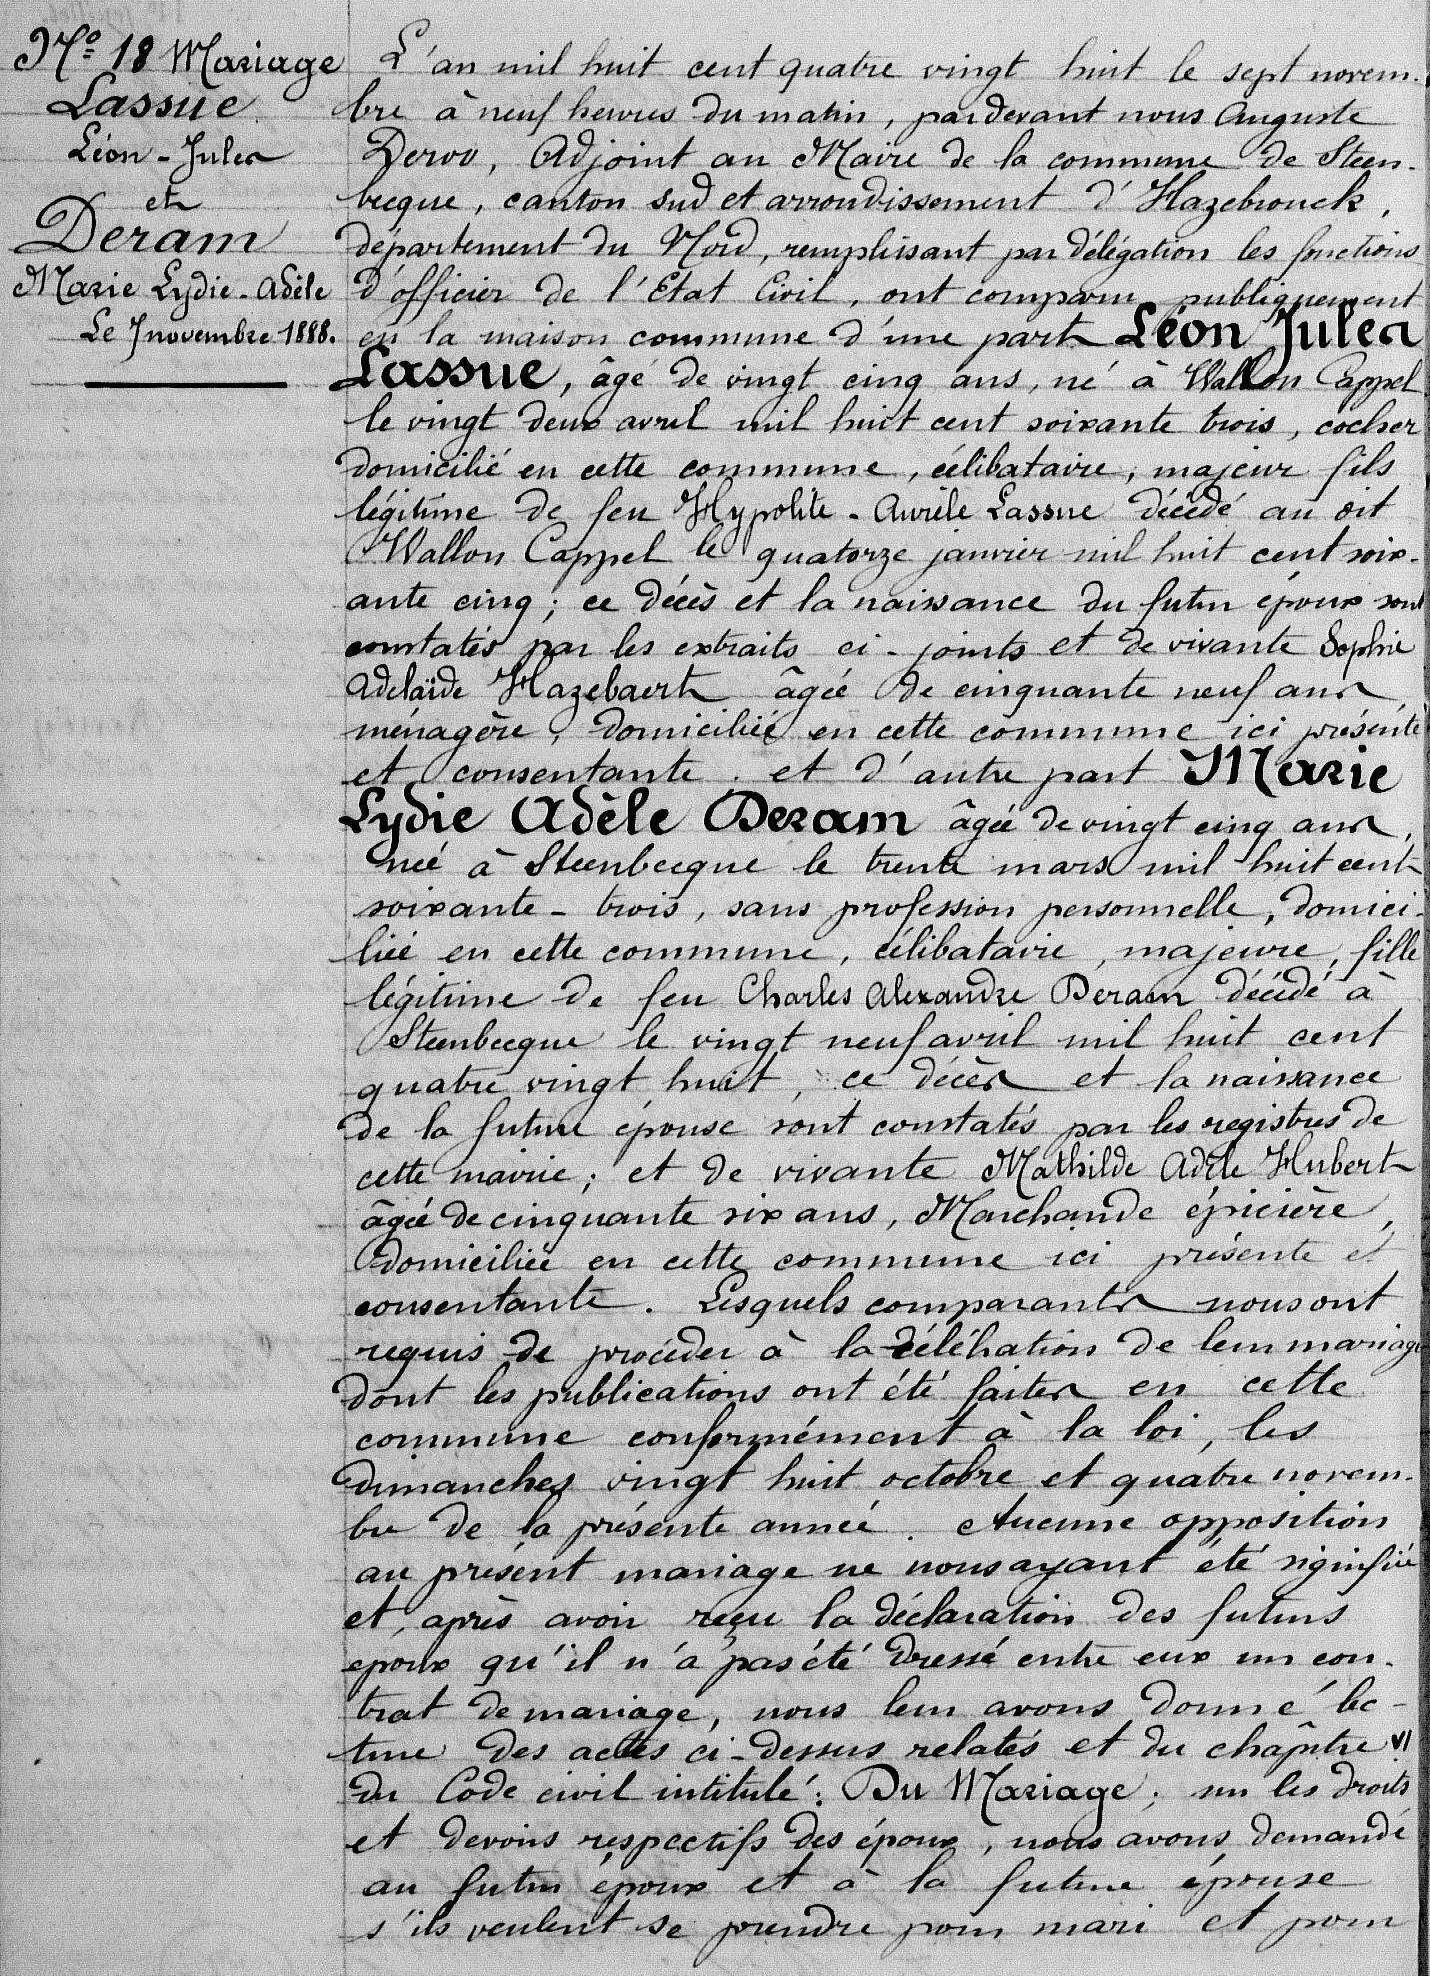 No 18 Mariage
Lassue
Léon-Jules
et
Deram
Marie Lydie-Adèle
Le 7 novembre 1888.
L'an mil huit cent quatre vingt huit le sept novem-
bre à neuf heures du matin, pardevant nous Auguste
Adjoint au Maire de la commune de Steen-
becque, canton sud et arrondissement d'Hazebrouck,
département du Nord, remplissant par délégation les fonctions
d'officier de l'Etat Civil, ont comparu publiquement
en la maison commune d'une part Léon Jules
Lassue, âgé de vingt cinq ans, né à Wallon Cappel
le vingt deux avril mil huit cent soixante trois, cocher
domicilié en cette commune, célibataire, majeur fils
légitime de feu Hypolite-Aurèle Lassue décédé au dit
Wallon Cappel le quatorze janvier mil huit cent soix-
ante cinq; ce décès et la naissance du futur époux sont
constatés par les extraits ci-joints et de vivante Sophie
Adelaïde Hazebaert âgée de cinquante neuf ans
ménagère, domiciliée en cette commune ici présente
et consentante. et d'autre part Marie
Lydie Adèle Deram âgée de vingt cinq ans,
née à Steenbecque le trente mars mil huit cent
soixante-trois, sans profession personnelle, domici-
liée en cette commune, célibataire, majeure, fille
légitime de feu Charles Alexandre Deram décédé à
Steenbecque le vingt neuf avril mil huit cent
quatre vingt huit, ce décès et la naissance
de la future épouse sont constatés par les registres de
cette mairie; et de vivante Mathilde Adèle Hubert
âgée de cinquante six ans, Marchande épicière,
domiciliée en cette commune ici présente et
consentante. Lesquels comparants nous ont
requis de procéder à la célébration de leur mariage
dont les publications ont été faites en cette
commune conformément à la loi, les
dimanches vingt huit octobre et quatre novem-
bre de la présente année. Aucune opposition
au présent mariage ne nous ayant été signifiée
et, après avoir reçu la déclaration des futurs
époux qu'il n'a pas été dressé entre eux un con-
trat de mariage, nous leur avons donné lec-
ture des actes ci-dessus relatés et du châpitre VI
du Code civil intitulé: Du Mariage; sur les droits
et devoirs respectifs des époux, nous avons demandé
au futur époux et à la future épouse
s'ils veulent se prendre pour mari et pour